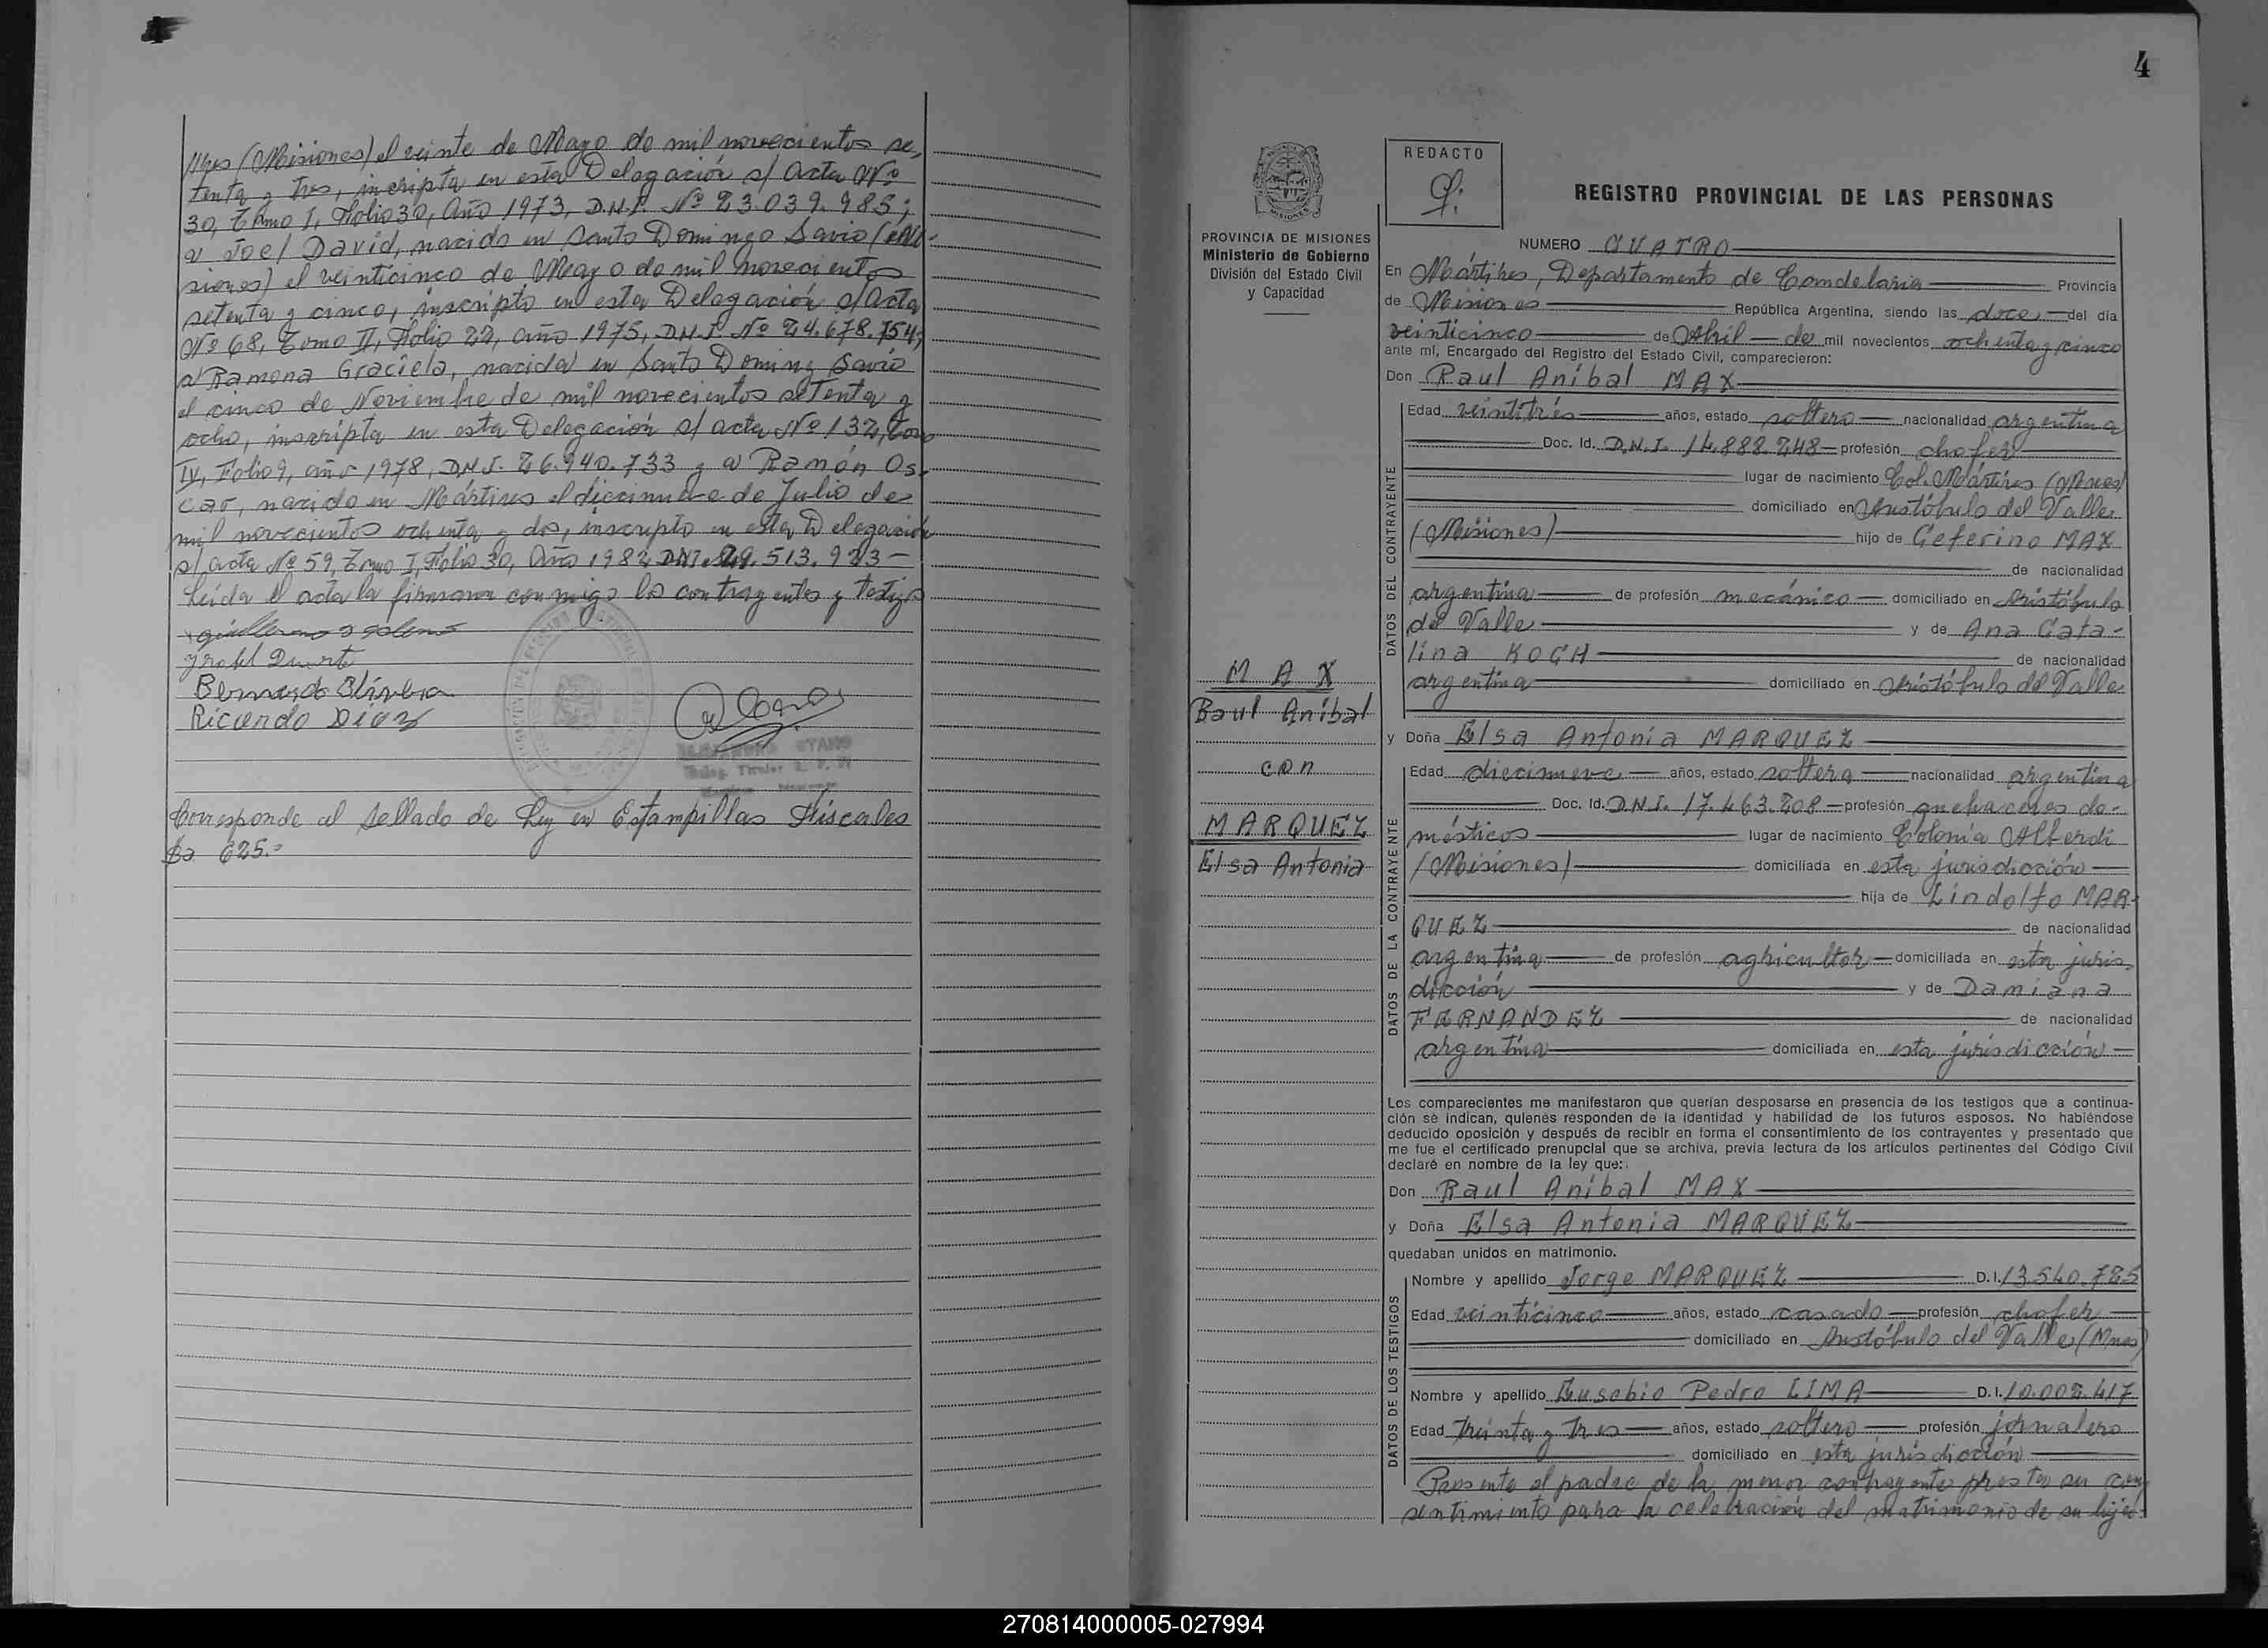 Mnes (Misiones) el veinte de Mayo de mil novecientos se-
tenta y tres, incripta en esta Delegación s/ acta Nº
30, Tomo I, Folio 30, Año 1973, D.N.I. Nº 23.039.985;
a Joel David, nacido en Santo Domingo Savio (Mi-
siones) el veinticinco de Mayo de mil novecientos
setenta y cinco, inscripto en esta Delegación s/acta
Nº 68, Tomo II, Folio 22, año 1975, D.N.I. Nº 24.678.754;
a Ramona Graciela, nacida en Santo Doming Savio
el cinco de Noviembre de mil novecientos setenta y
ocho, inscripta en esta Delegación s/ acta Nº 132, Tomo
IV, Folio 9, año 1978, DNI. 26.940.733 y a Ramón Os-
car, nacido en Mártires el diecinueve de Julio de
mil novecientos ochenta y dos, inscripto en esta Delegación
s/ acta Nº 59, Tomo I, Folio 30, Año 1982 DNI. 29.513.923-
Leída el acta la firmaron conmigo los contrayentes y testigos
Bernardo Olivera
Ricardo Diaz
Corresponde al sellado de Ley en Estampillas Fiscales
$a 625.=
4
PROVINCIA DE MISIONES
Ministerio de Gobierno
División del Estado Civil
y Capacidad
REDACTO
REGISTRO PROVINCIAL DE LAS PERSONAS
NUMERO CUATRO
En Mártires, Departamento de Candelaria Provincia
de Misiones República Argentina, siendo las doce del día
veinticinco de Abril de mil novecientos ochenta y cinco
ante mí, Encargado del Registro del Estado Civil, comparecieron:
Don Raul Anibal MAX
DATOS DEL CONTRAYENTE
Edad veintitrés años, estado soltero nacionalidad argentina
Doc. Id. D.N.I. 14.888.248 profesión chofer
lugar de nacimiento Col. Mártires (Mnes)
domiciliado en Aristóbulo del Valle
(Misiones) hijo de Ceferino MAX
de nacionalidad
argentina de profesión mecánico domiciliado en Aristóbulo
del Valle y de Ana Cata-
lina KOCH de nacionalidad
argentina domiciliado en Aristóbulo del Valle
M A X
Raul Anibal
con
MARQUEZ
Elsa Antonia
y Doña Elsa Antonia MARQUEZ
DATOS DE LA CONTRAYENTE
Edad diecinueve años, estado soltera nacionalidad argentina
Doc. Id. D.N.I. 17.463.208 profesión quehaceres do-
mésticos lugar de nacimiento Colonia Alberdi
(Misiones) domiciliada en esta jurisdicción
hija de Lindolfo MAR-
QUEZ de nacionalidad
argentina de profesión agricultor domiciliada en esta juris-
dicción y de Damiana
FERNANDEZ de nacionalidad
argentina domiciliada en esta jurisdicción
Los comparecientes me manifestaron que querían desposarse en presencia de los testigos que a continua-
ción se indican, quienes responden de la identidad y habilidad de los futuros esposos. No habiéndose
deducido oposición y después de recibir en forma el consentimiento de los contrayentes y presentado que
me fue el certificado prenupcial que se archiva, previa lectura de los artículos pertinentes del Código Civil
declaré en nombre de la ley que:
Don Raul Anibal MAX
y Doña Elsa Antonia MARQUEZ
quedaban unidos en matrimonio.
DATOS DE LOS TESTIGOS
Nombre y apellido Jorge MARQUEZ D.I. 13.540.725
Edad veinticinco años, estado casado profesión chofer
domiciliado en Aristóbulo del Valle (Mnes)
Nombre y apellido Eusebio Pedro LIMA D.I. 10.002.417
Edad treinta y tres años, estado soltero profesión jornalero
domiciliado en esta jurisdicción
Presente el padre de la menor contrayente presta su con
sentimiento para la celebración del matrimonio de su hija.
270814000005-027994